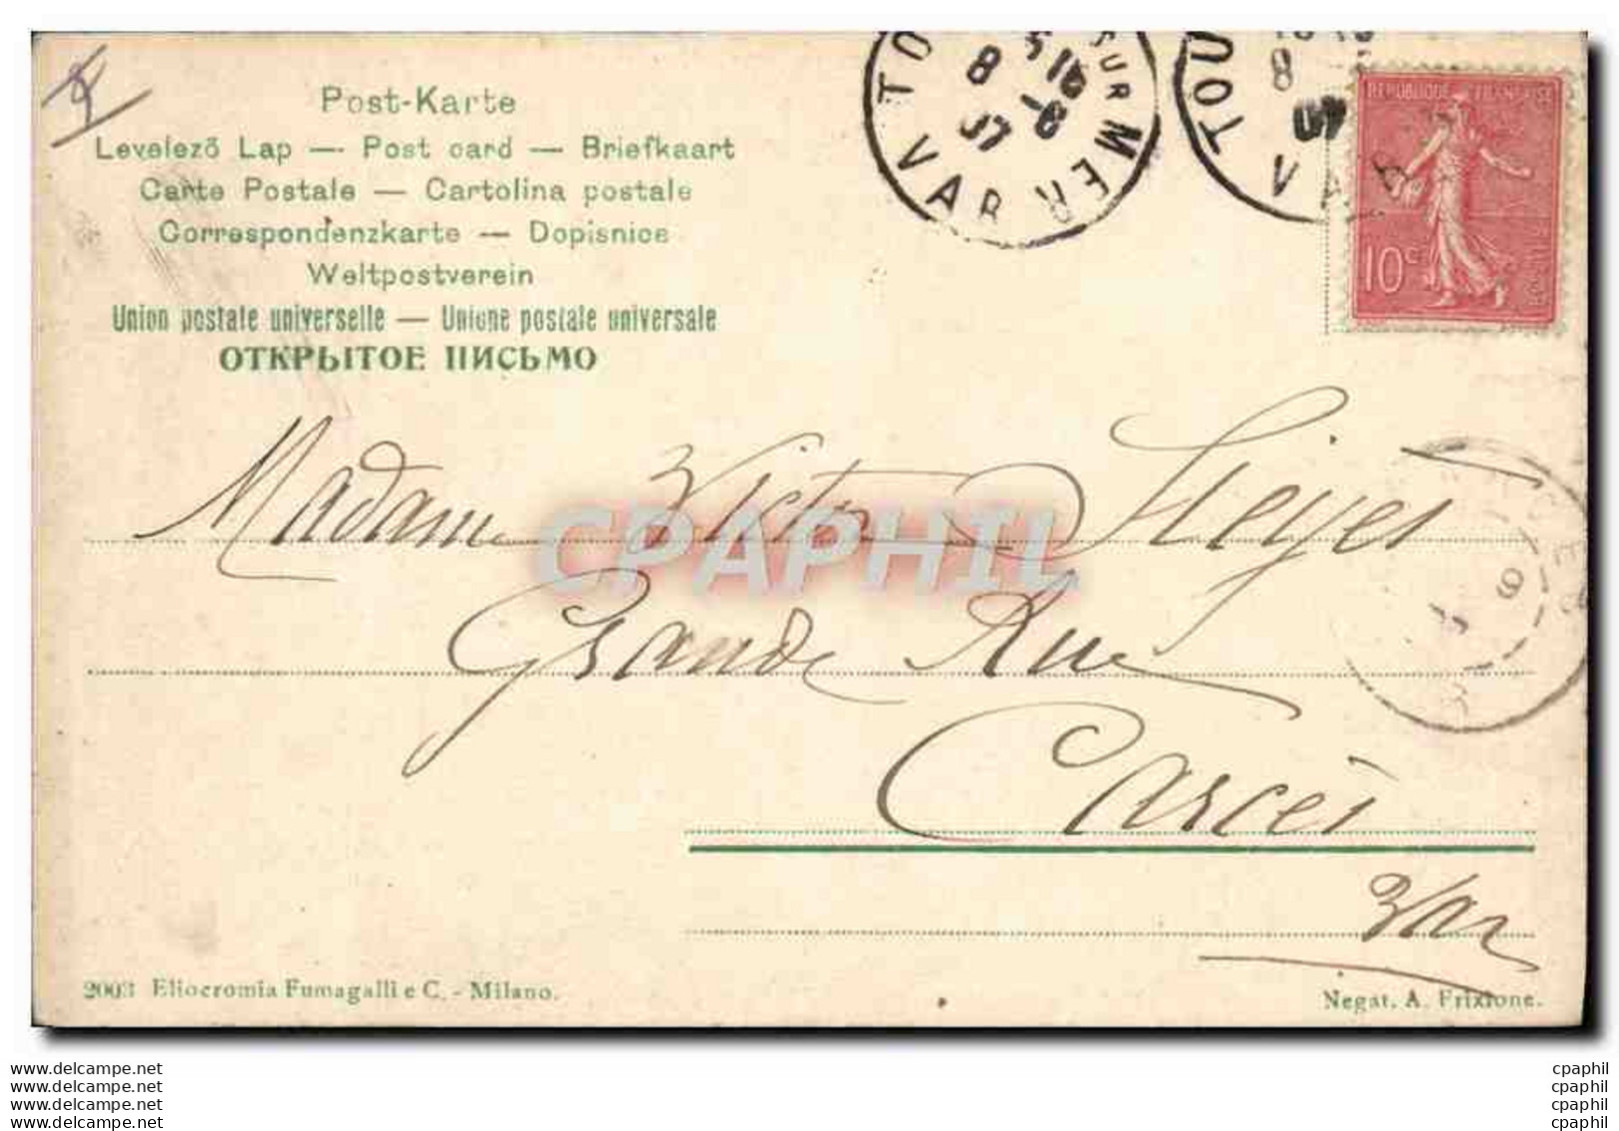 Post-Karte
Levelező Lap — Post card — Briefkaart
Carte Postale — Cartolina postale
Correspondenzkarte — Dopisnice
Weltpostverein
Union postale universelle — Unione postale universale
ОТКРЫТОЕ ПИСЬМО
SUR MER
VAR
8
07
TOU
8
07
VAR
REPUBLIQUE FRANÇAISE
10c
Madame Victor
Grande Rue
Carcès
Var
CPAPHIL
9
2003 Eliocromia Fumagalli e C. - Milano.
Negat. A. Frixione.
www.delcampe.net
www.delcampe.net
www.delcampe.net
www.delcampe.net
cpaphil
cpaphil
cpaphil
cpaphil